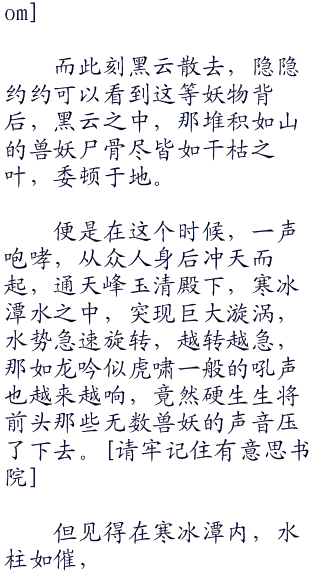 om]
而此刻黑云散去，隐隐
约约可以看到这等妖物背
后，黑云之中，那堆积如山
的兽妖尸骨尽皆如干枯之
叶，委顿于地。
便是在这个时候，一声
咆哮，从众人身后冲天而
起，通天峰玉清殿下，寒冰
潭水之中，突现巨大漩涡，
水势急速旋转，越转越急，
那如龙吟似虎啸一般的吼声
也越来越响，竟然硬生生将
前头那些无数兽妖的声音压
了下去。[请牢记住有意思书
院]
但见得在寒冰潭内，水
柱如催，